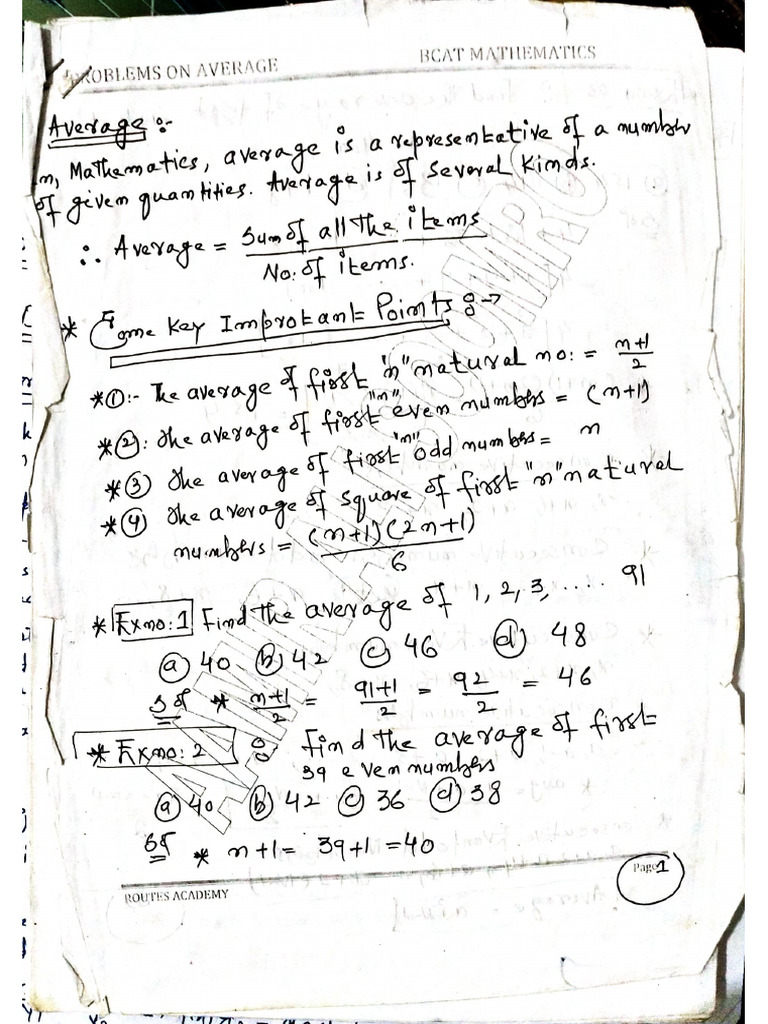 PROBLEMS ON AVERAGE BCAT MATHEMATICS
Average :-
In, Mathematics, average is a representative of a number
of given quantities. Average is of several kinds.
∴ Average = Sum of all the items
No: of items.
* Some Key Improtant Points :→
*①:- The average of first "n" natural no: = n+1/2
*②: The average of first "n" even numbers = (n+1)
*③ The average of first "n" odd numbers = n
*④ The average of square of first "n" natural
numbers = (n+1)(2n+1)/6
* Ex no: 1 Find the average of 1, 2, 3, .... 91
ⓐ 40 ⓑ 42 ⓒ 46 ⓓ 48
Sol * n+1/2 = 91+1/2 = 92/2 = 46
* Ex no: 2 : Find the average of first
39 even numbers
ⓐ 40 ⓑ 42 ⓒ 36 ⓓ 38
Sol * n+1 = 39+1 = 40
Page 1
ROUTES ACADEMY